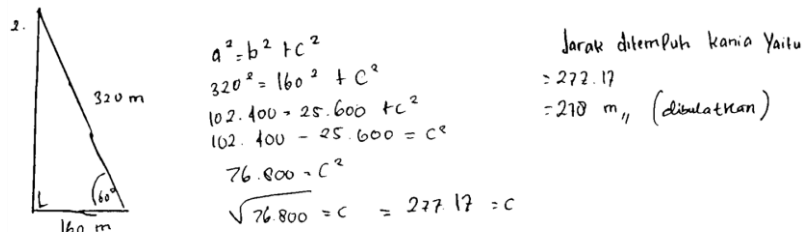 2.
320 m
60°
160 m
a² = b² + c²
320² = 160² + c²
102.400 = 25.600 + c²
102.400 - 25.600 = c²
76.800 = c²
√76.800 = c = 277.17 = c
Jarak ditempuh kania yaitu
= 277.17
= 278 m,, (dibulatkan)